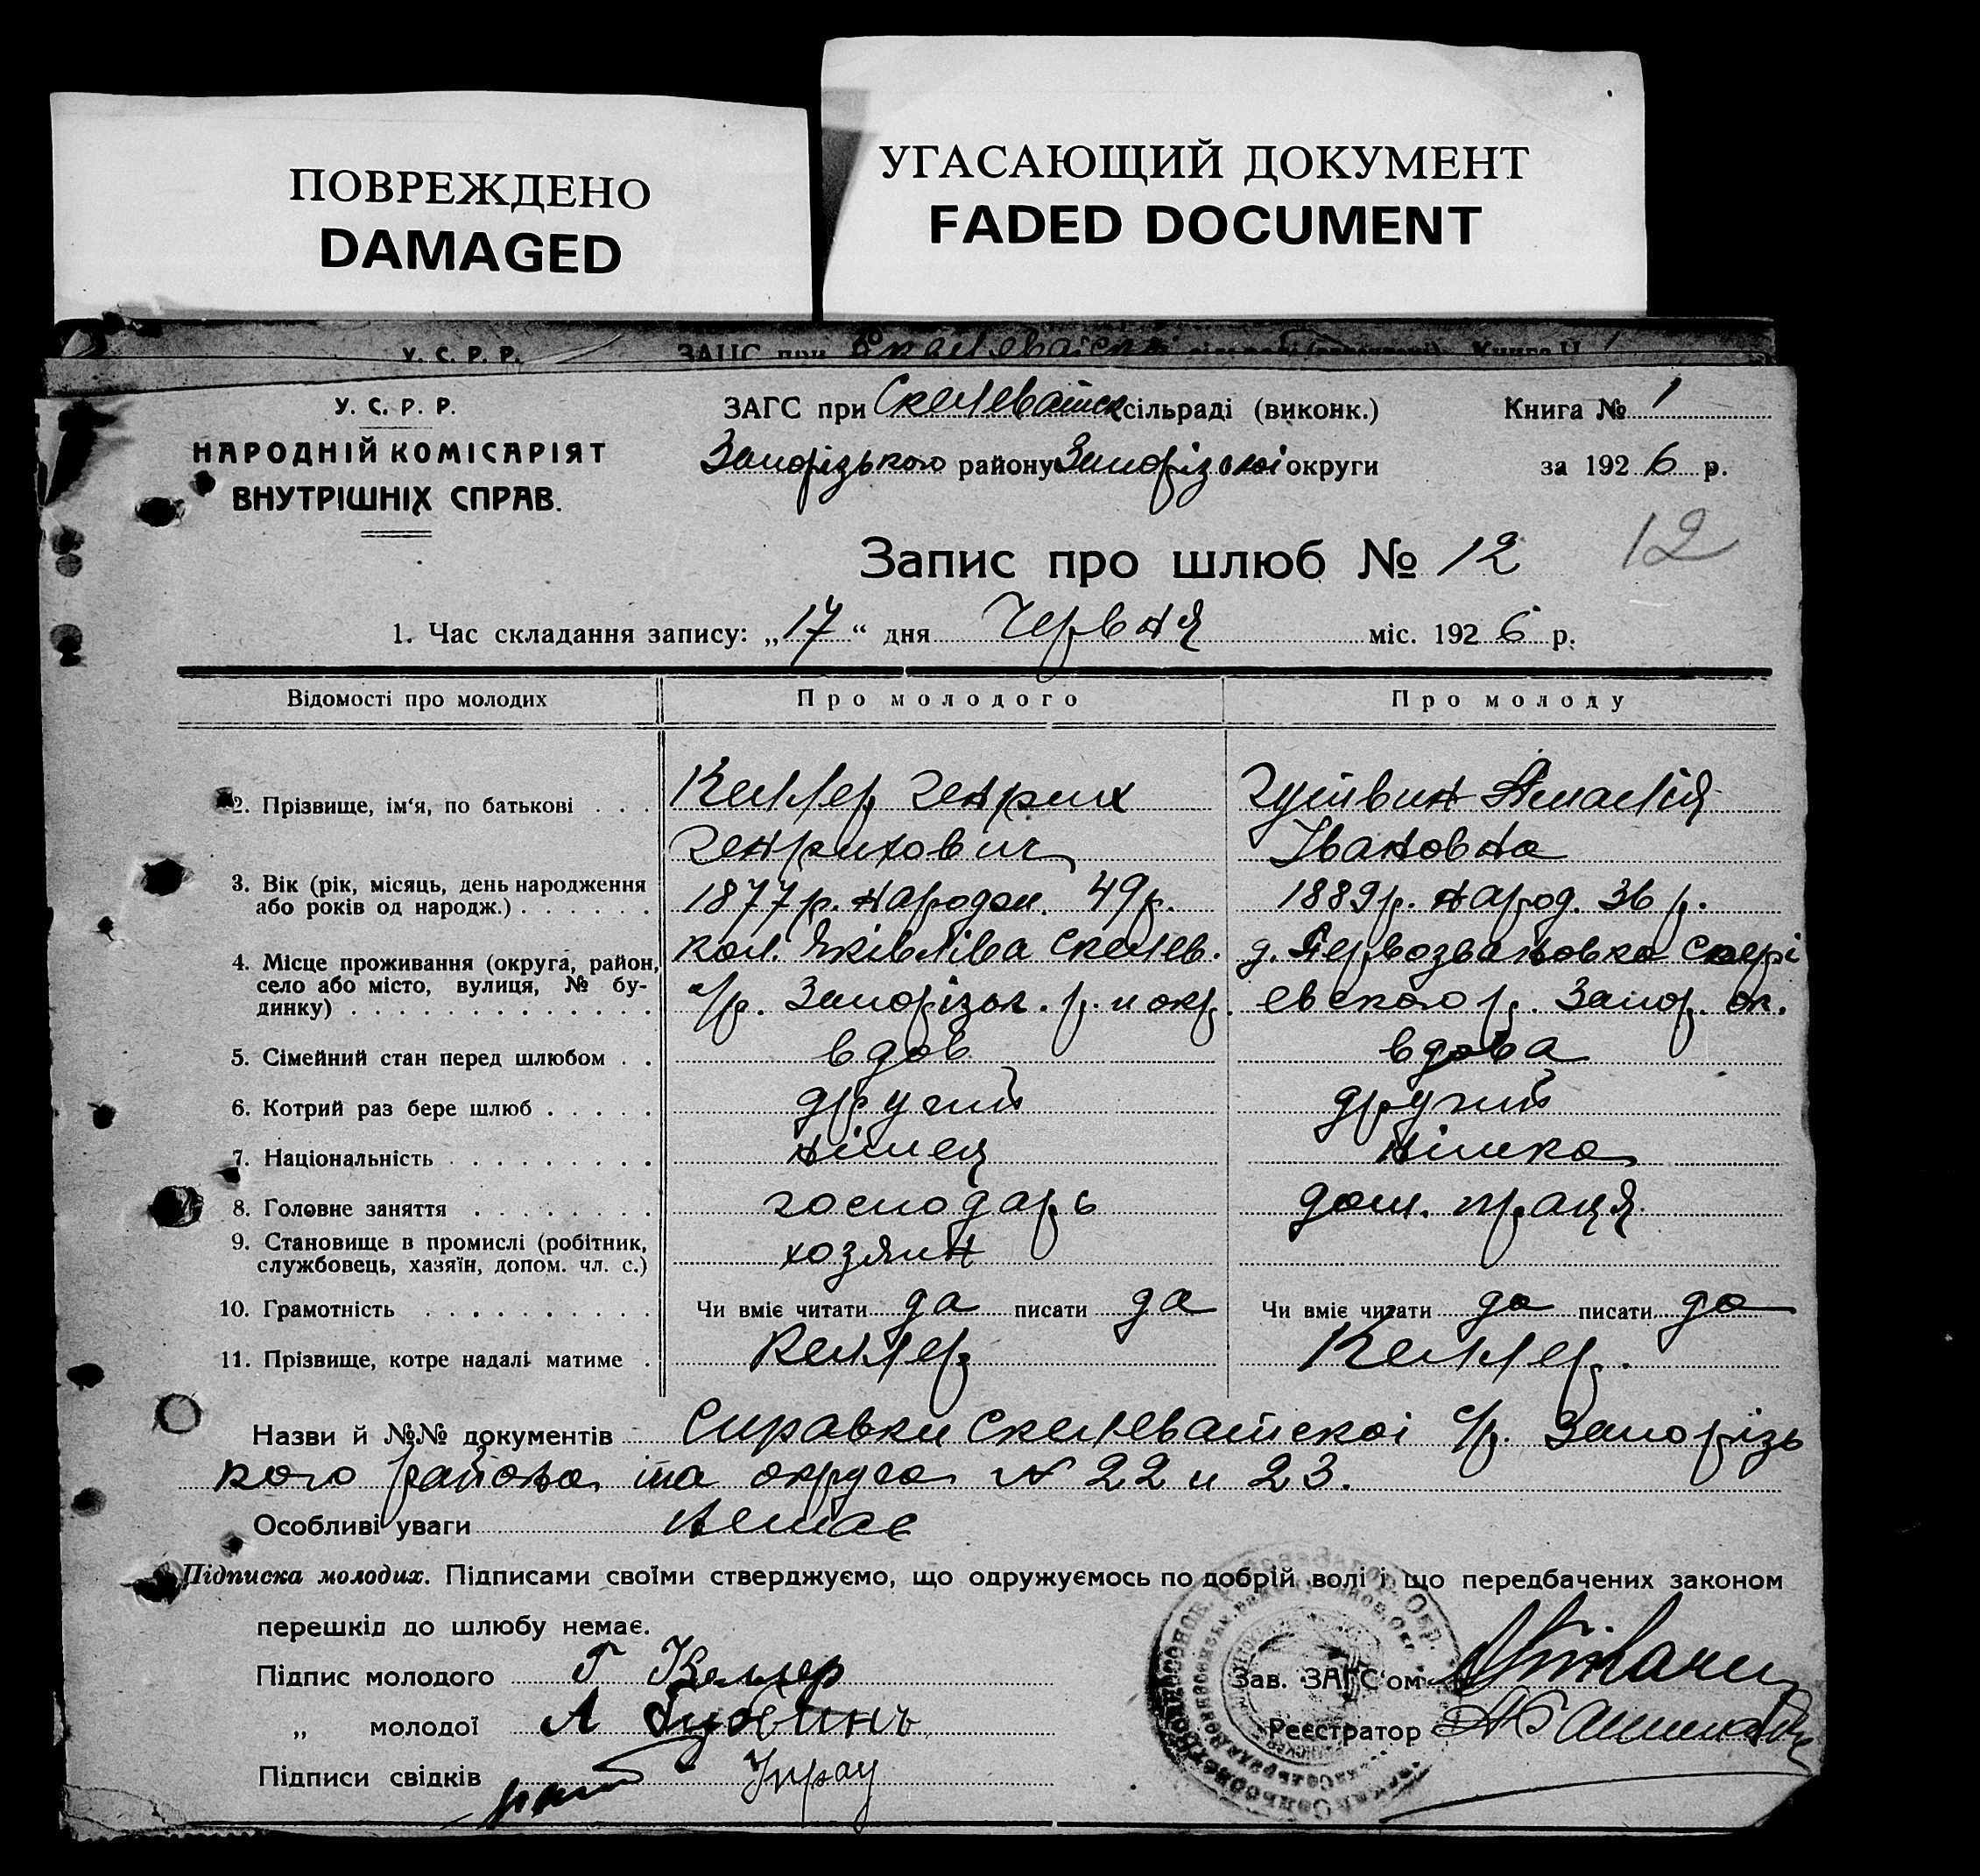 ПОВРЕЖДЕНО
DAMAGED
УГАСАЮЩИЙ ДОКУМЕНТ
FADED DOCUMENT
У. С. Р. Р. ЗАГС при
У. С. Р. Р.
НАРОДНІЙ КОМІСАРІЯТ
ВНУТРІШНІХ СПРАВ.
ЗАГС при Скелеватск сільраді (виконк.) Книга № 1
Запорізького району Запорізькоі округи за 1926 р.
Запис про шлюб № 12 12
1. Час складання запису: „17“ дня Червня міс. 1926 р.
Відомості про молодих Про молодого Про молоду
2. Прізвище, ім'я, по батькові . . . Келлер Генрих Гутвин Амалія
Генрихович Івановна
3. Вік (рік, місяць, день народження 1877 р. народж. 49 р. 1889 р. народ. 36 р.
або років од народж.) . . . . . .
4. Місце проживання (округа, район, кол. Яківліва Скелев. д. Первозвановка
село або місто, вулиця, № бу- с/р. Запорізьк. р. и окр. евского р. Запор. ок.
динку) . . . . . . . . . . . . .
5. Сімейний стан перед шлюбом . . вдов вдова
6. Котрий раз бере шлюб . . . . . другий другий
7. Національність . . . . . . . . . німец німка
8. Головне заняття . . . . . . . . господарь дом. праця
9. Становище в промислі (робітник, хозяин
службовець, хазяїн, допом. чл. с.)
10. Грамотність . . . . . . . . . . Чи вміє читати да писати да Чи вміє читати да писати да
11. Прізвище, котре надалі матиме . Келлер Келлер.
Назви й №№ документів Справки Скелеватскоі с/р. Запорізь
кого района та округа № 22 и 23.
Особливі уваги немає
Підписка молодих. Підписами своїми стверджуємо, що одружуємось по добрій волі і що передбачених законом
перешкід до шлюбу немає.
Підпис молодого Г Келлер
„ молодої А Гутвинъ
Зав. ЗАГС'ом
Реєстратор
Підписи свідків